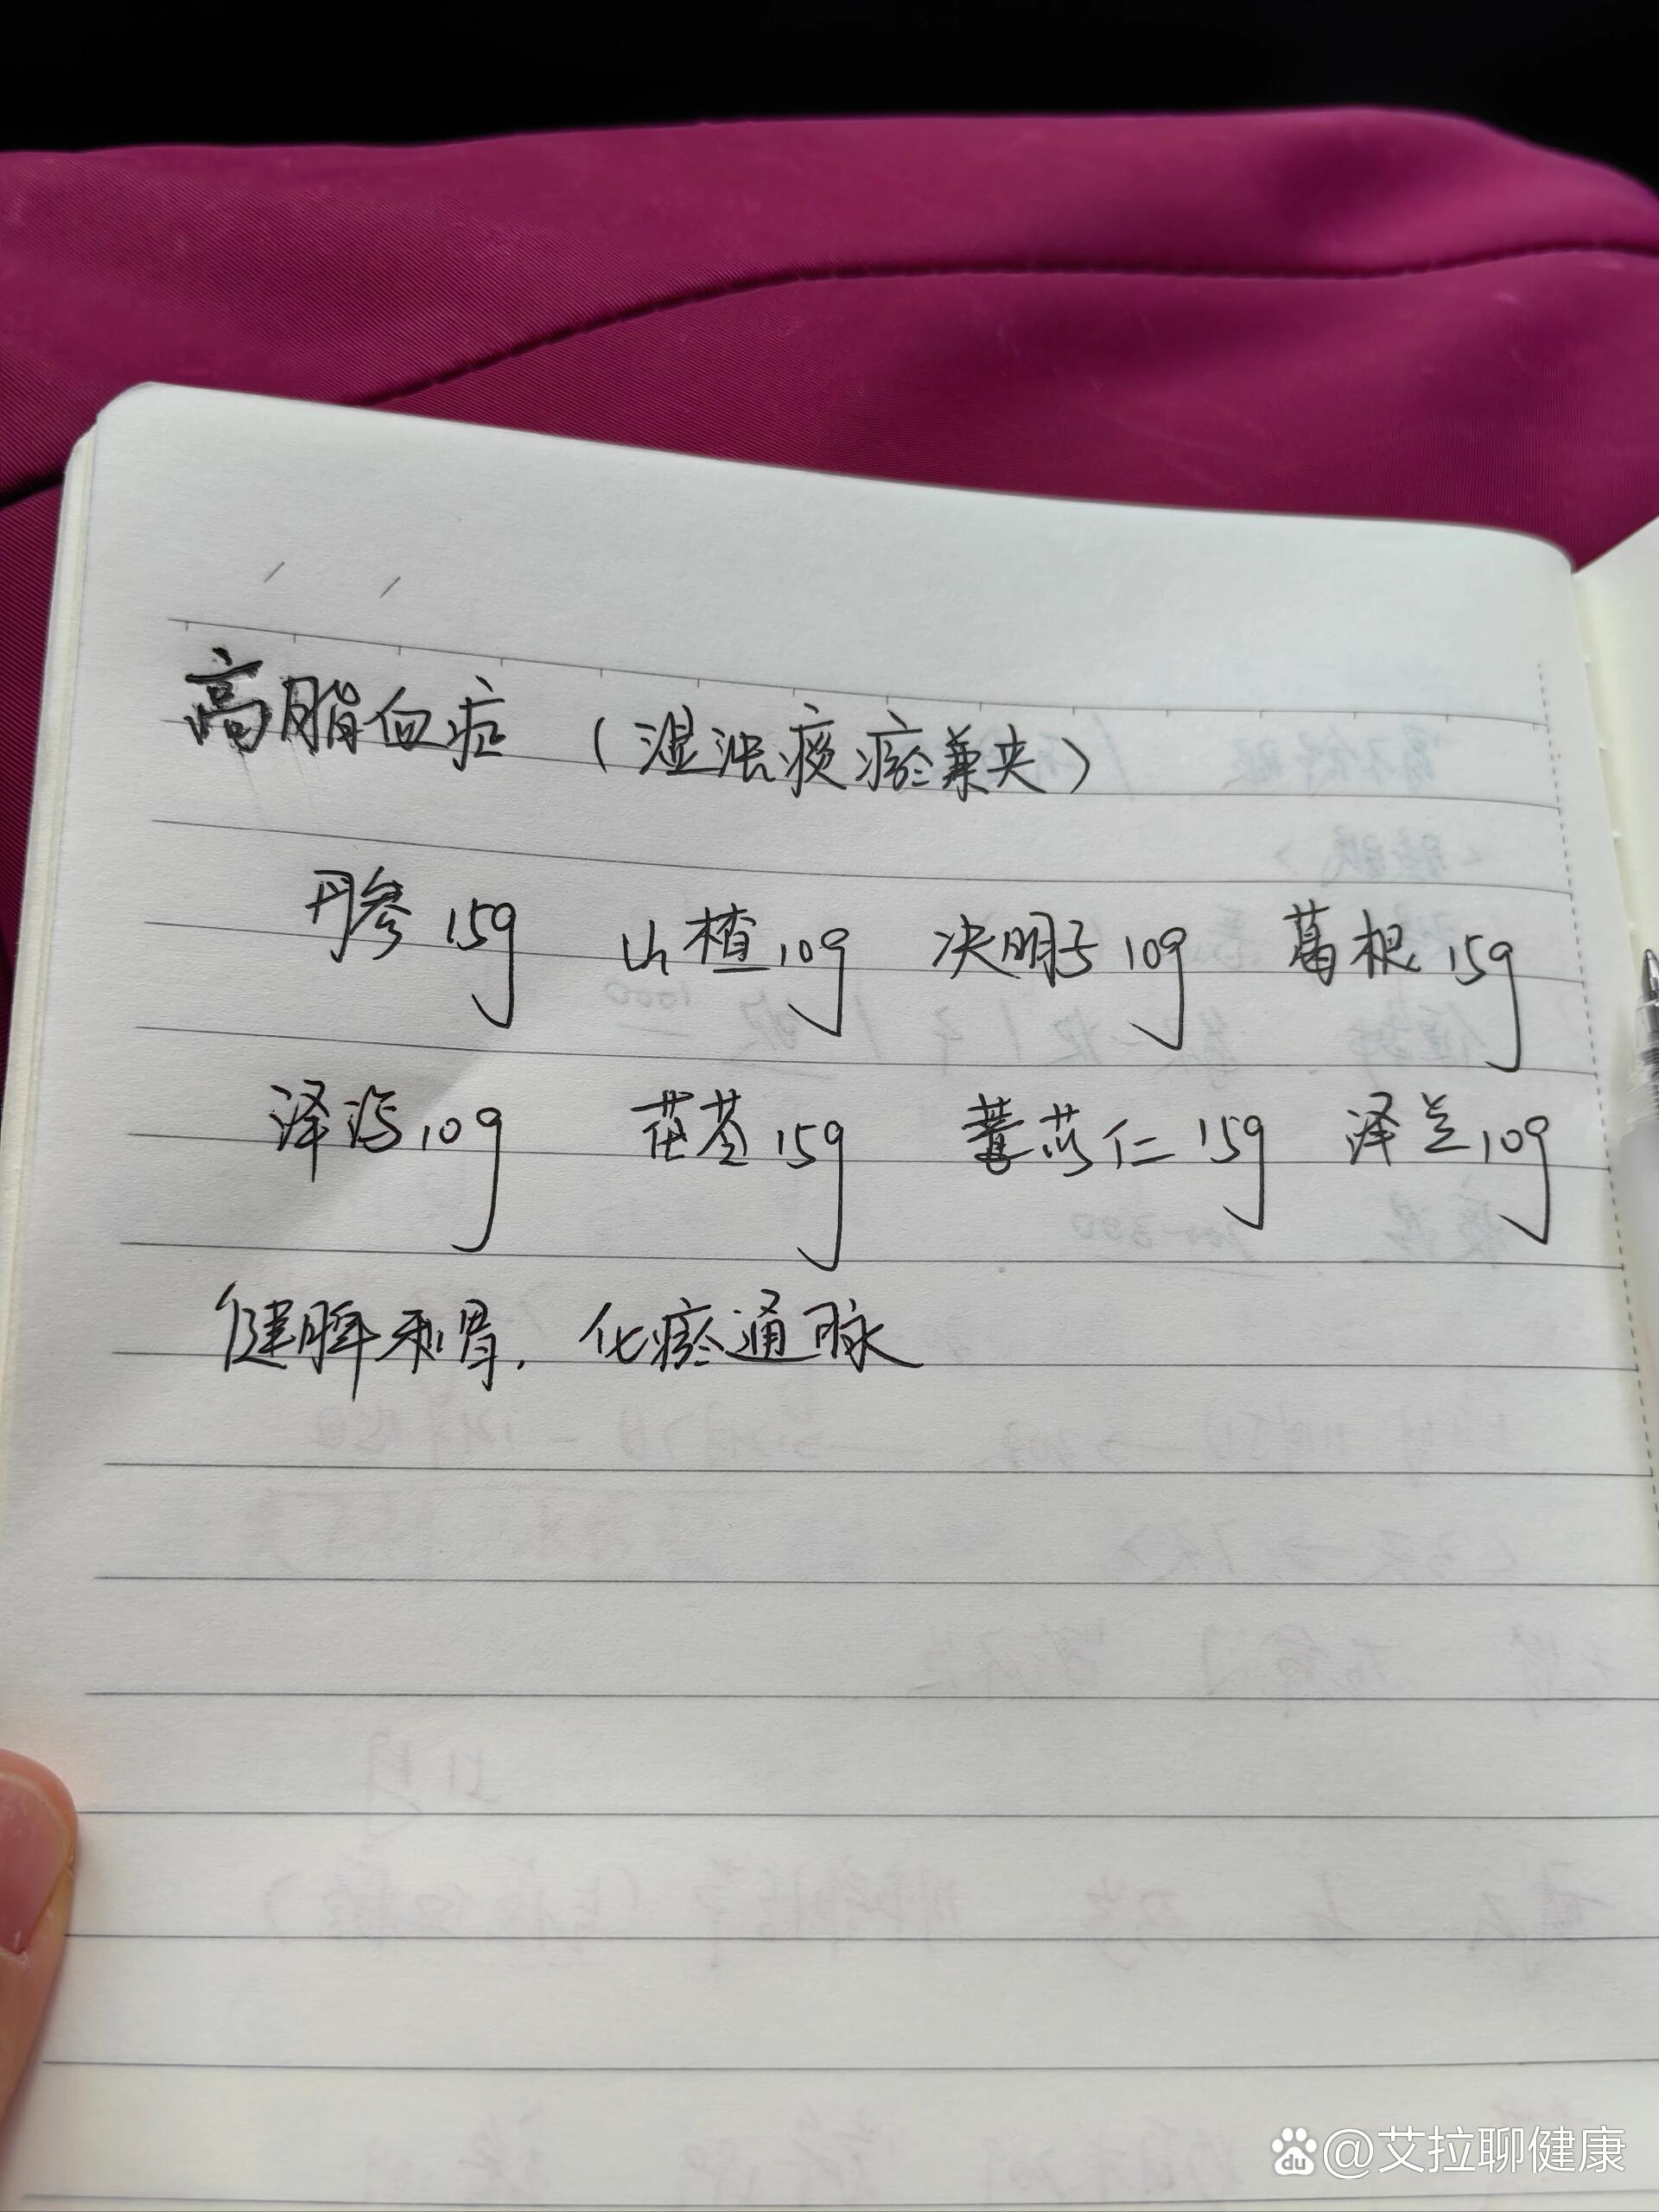 高脂血症（湿浊痰瘀兼夹）
丹参15g 山楂10g 决明子10g 葛根15g
泽泻10g 茯苓15g 薏苡仁15g 泽兰10g
健脾和胃，化瘀通脉
@艾拉聊健康